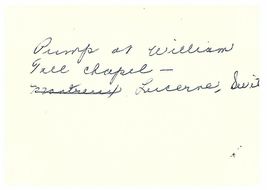 Pump at William
Tell chapel -
Montreux Lucerne, Swit